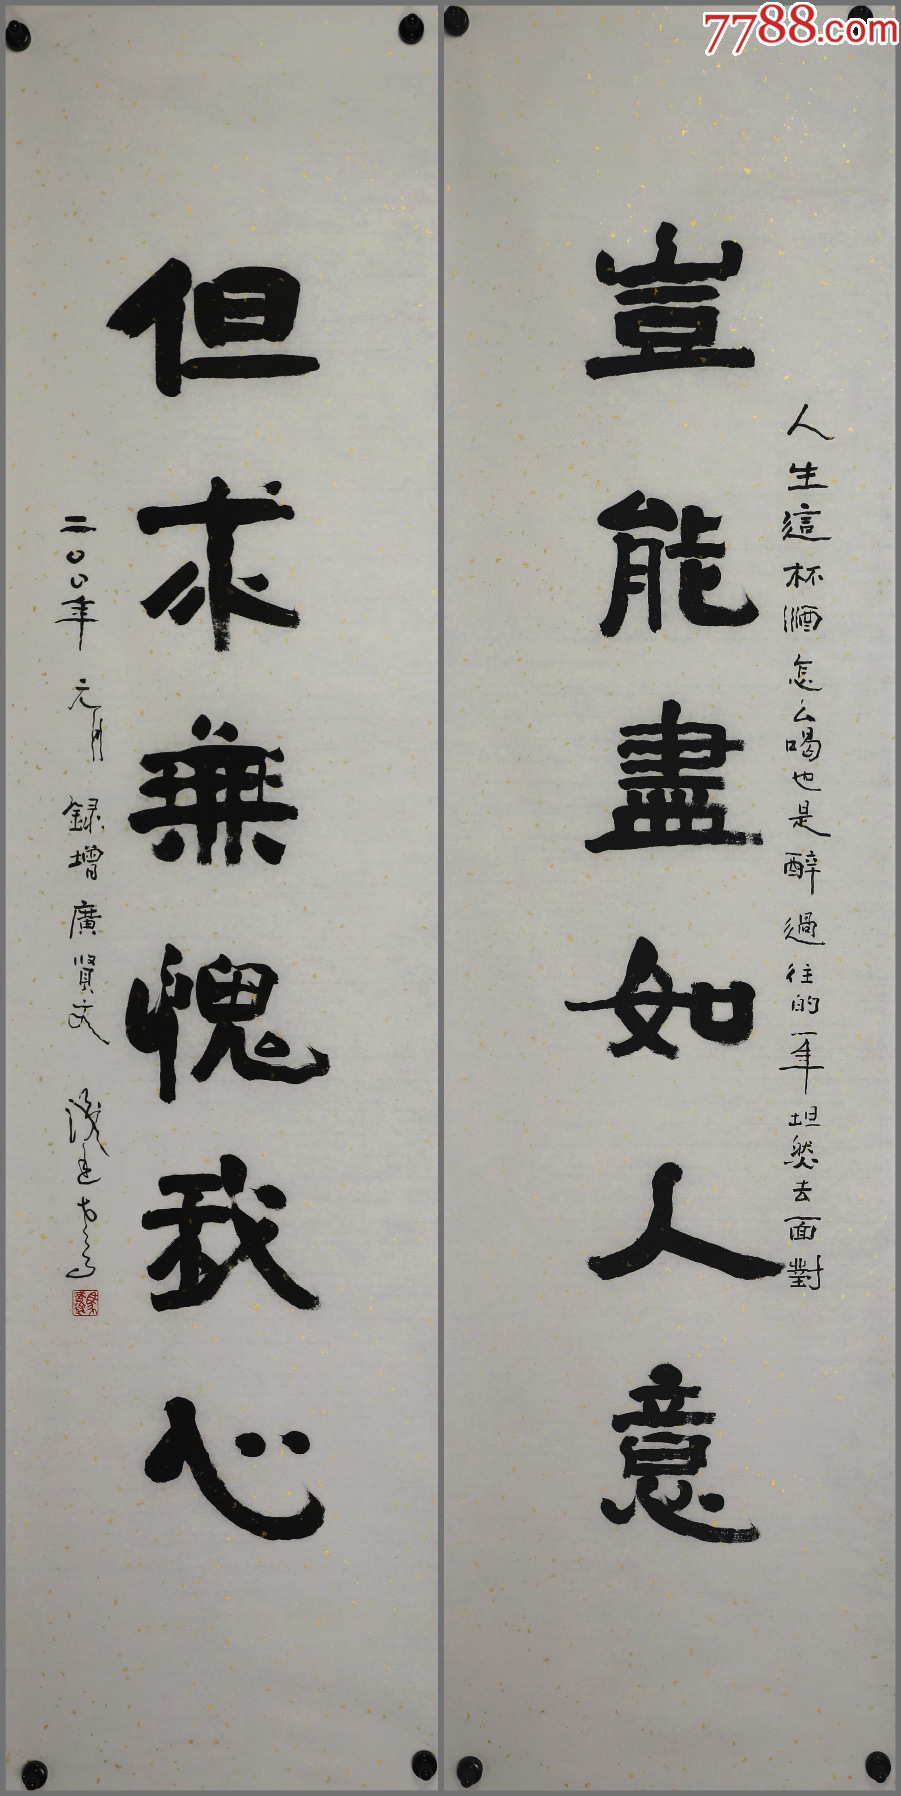 7788.com
人生這杯酒怎么喝也是醉過往的一年坦然去面對
豈能盡如人意
但求無愧我心
二〇〇年元月録增廣贤文